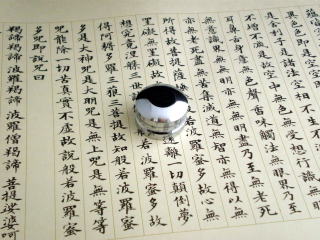 異色色即是空空
是舍利子是諸法空相
不增不減是故空中無色無受想行識
耳鼻舌身意無色聲香味觸法無眼界乃至
意識界無無明亦無無明盡乃至無老死
亦無老死盡無苦集滅道無智亦無得以無
所得故菩提薩 故心無
罣礙無罣礙 遠離一切顛倒夢
想究竟涅槃 波羅蜜多故
得阿耨多羅三藐三菩提故知般若波羅蜜
多是大神咒是大明咒是無上咒是無等等
咒能除一切苦真實不虛故說般若波羅蜜
多咒即說咒曰
羯諦羯諦波羅羯諦波羅僧羯諦菩提娑婆訶